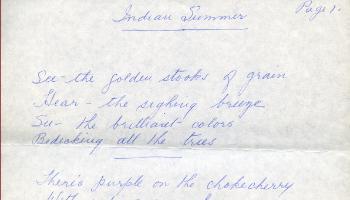 Indian Summer
Page 1.
See - the golden stooks of grain
Hear - the sighing breeze
See - the brilliant colors
Bedecking all the trees
Theris purple on the chokecherry